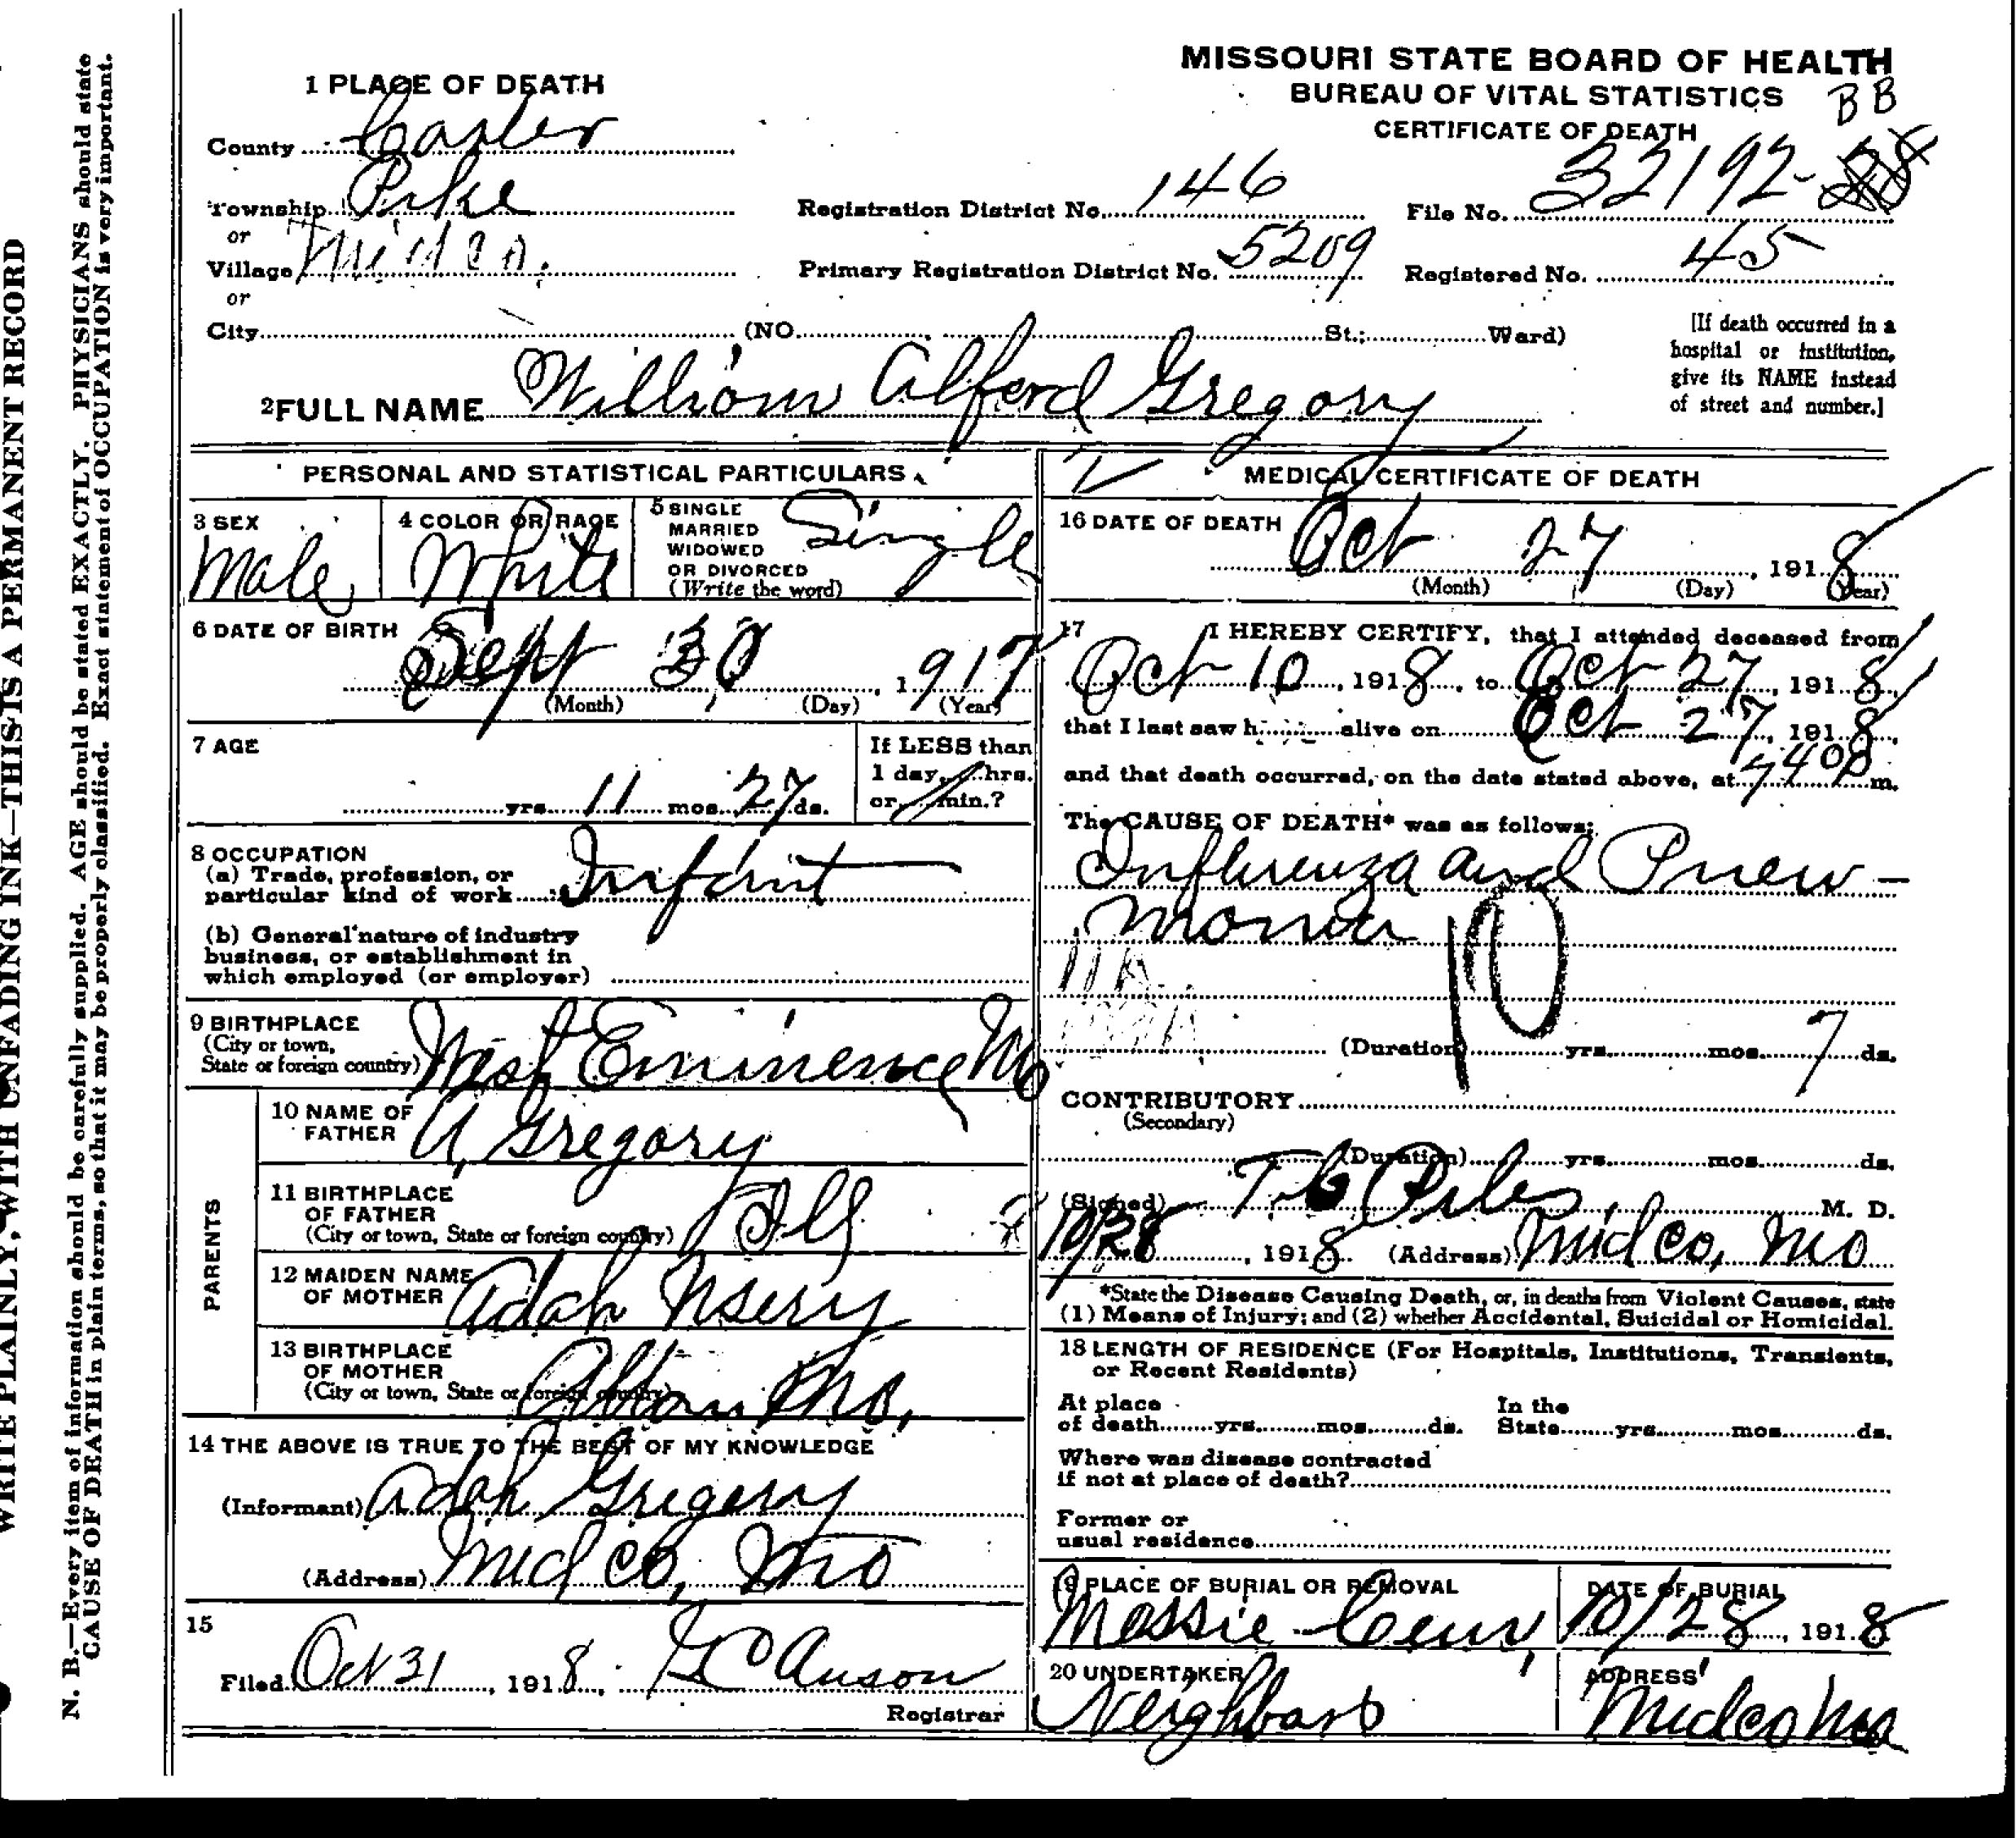 MISSOURI STATE BOARD OF HEALTH
BUREAU OF VITAL STATISTICS BB
CERTIFICATE OF DEATH
1 PLACE OF DEATH
County Carter
Township Pike
or
Village Midco.
or
City (NO. St.; Ward)
Registration District No. 146
Primary Registration District No. 5209
File No. 32192-
Registered No. 45
[If death occurred in a
hospital or institution,
give its NAME instead
of street and number.]
2 FULL NAME William Alferd Gregory
PERSONAL AND STATISTICAL PARTICULARS
3 SEX
Male
4 COLOR OR RACE
White
5 SINGLE
MARRIED
WIDOWED
OR DIVORCED
(Write the word)
Single
6 DATE OF BIRTH
Sept 30, 1917
(Month) (Day) (Year)
7 AGE
yrs. 11 mos. 27 ds.
If LESS than
1 day, hrs.
or min.?
8 OCCUPATION
(a) Trade, profession, or
particular kind of work Infant
(b) General nature of industry
business, or establishment in
which employed (or employer)
9 BIRTHPLACE
(City or town,
State or foreign country) West Eminence Mo
PARENTS
10 NAME OF
FATHER A, Gregory
11 BIRTHPLACE
OF FATHER
(City or town, State or foreign country) Ill
12 MAIDEN NAME
OF MOTHER Adah
13 BIRTHPLACE
OF MOTHER
(City or town, State or foreign country) Alton Mo,
14 THE ABOVE IS TRUE TO THE BEST OF MY KNOWLEDGE
(Informant) Adah Gregery
(Address) Midco, Mo
15
Filed Oct 31, 1918. G C Anson
Registrar
MEDICAL CERTIFICATE OF DEATH
16 DATE OF DEATH
Oct 27, 1918
(Month) (Day) (Year)
17 I HEREBY CERTIFY, that I attended deceased from
Oct 10, 1918, to Oct 27, 1918,
that I last saw h alive on Oct 27, 1918,
and that death occurred, on the date stated above, at 740 P m.
The CAUSE OF DEATH* was as follows:
Influenza and Pnew-
monia
11A
10
(Duration) yrs. mos. 7 ds.
CONTRIBUTORY
(Secondary)
(Duration) yrs. mos. ds.
(Signed) M. D.
10/28, 1918. (Address) Midco, Mo
*State the Disease Causing Death, or, in deaths from Violent Causes, state
(1) Means of Injury; and (2) whether Accidental, Suicidal or Homicidal.
18 LENGTH OF RESIDENCE (For Hospitals, Institutions, Transients,
or Recent Residents)
At place
of death yrs. mos. ds.
In the
State yrs. mos. ds.
Where was disease contracted
if not at place of death?
Former or
usual residence
19 PLACE OF BURIAL OR REMOVAL
Mossie Cem,
DATE OF BURIAL
10/28, 1918
20 UNDERTAKER
Neighbors
ADDRESS
Midco Mo
N. B.—Every item of information should be carefully supplied. AGE should be stated EXACTLY. PHYSICIANS should state
CAUSE OF DEATH in plain terms, so that it may be properly classified. Exact statement of OCCUPATION is very important.
WRITE PLAINLY, WITH UNFADING INK—THIS IS A PERMANENT RECORD